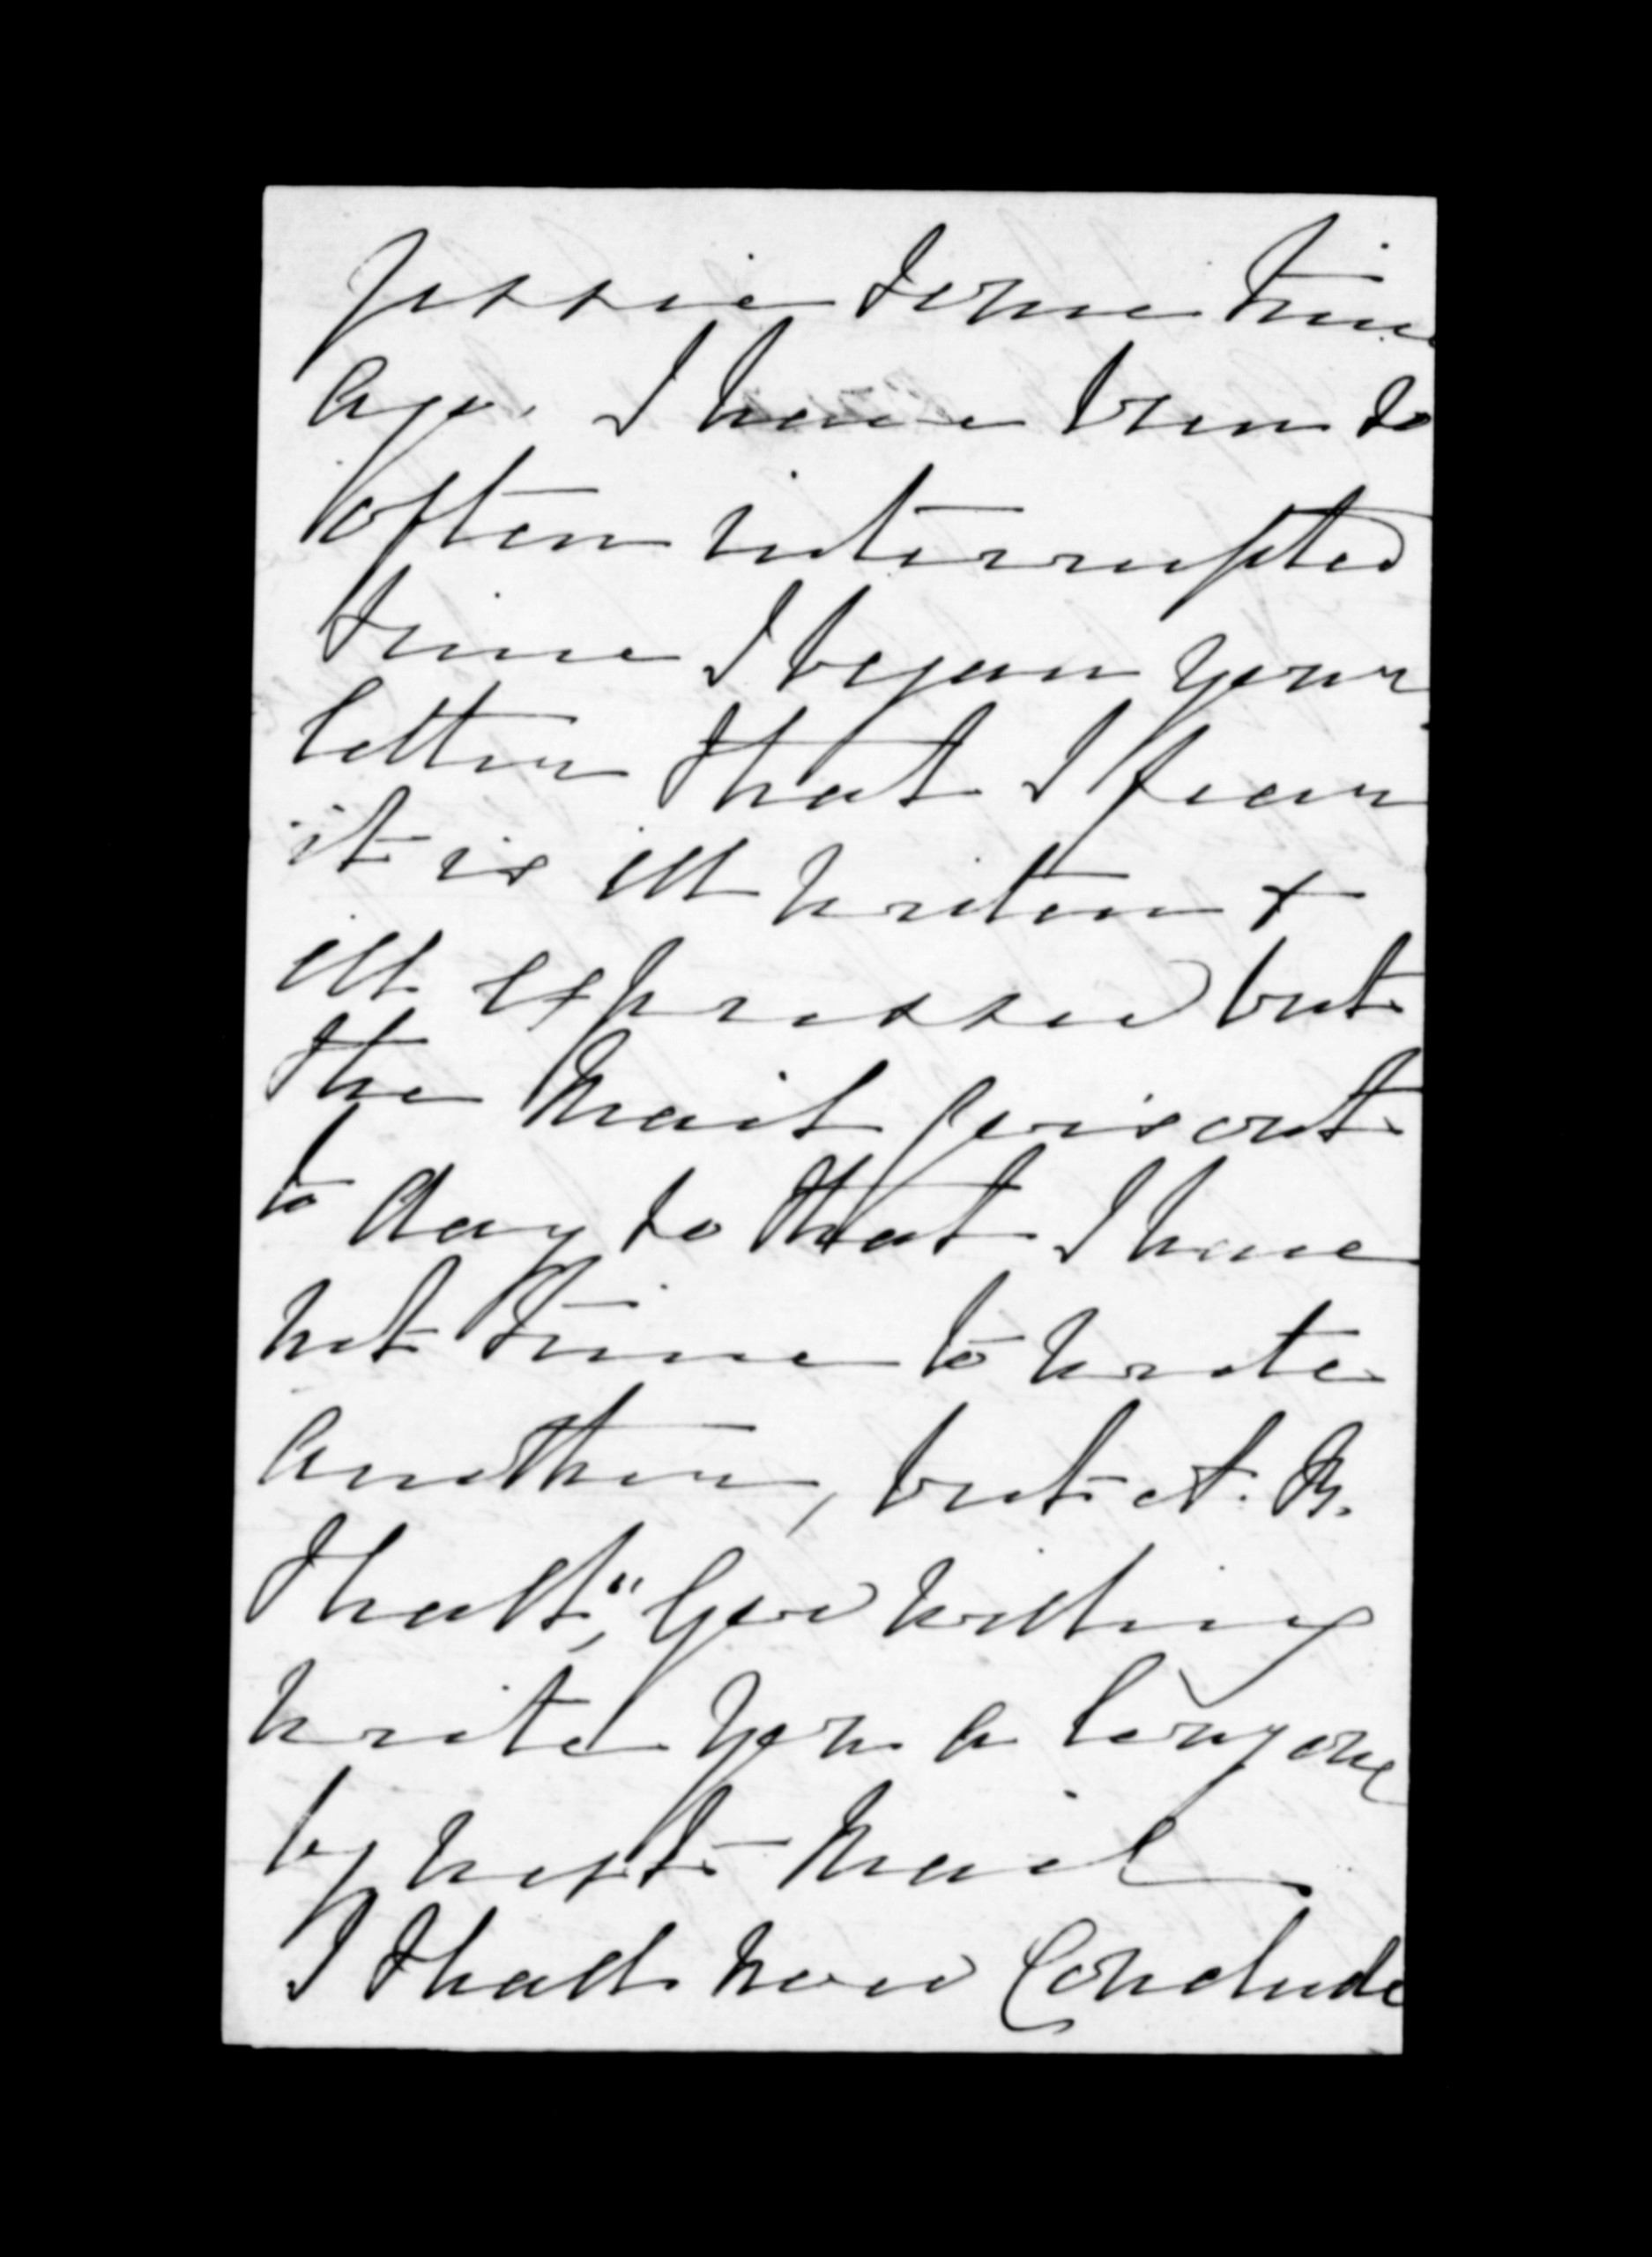 Jessie some time
ago. I have been so
often interrupted
since I began your
letter that I fear
it is ill written &
ill expressed but
the Mail goes out
to day so that I have
not time to write
another, but
shall, "God willing
write you a long one
by next Mail
I shall now Conclude